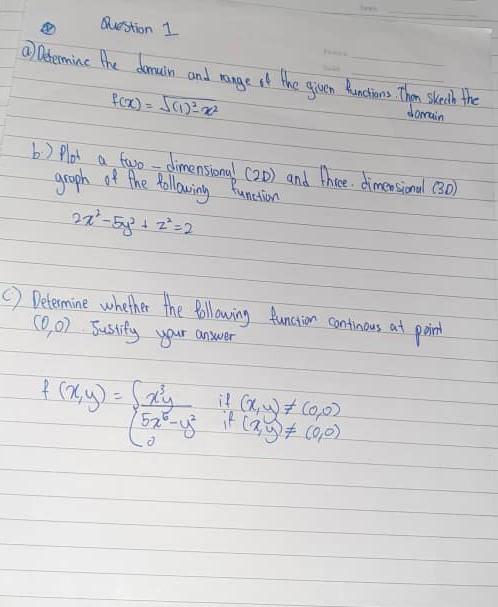 Question 1
a) Determine the domain and range of the given functions. Then skecth the
domain
f(x) = √(1)²-x²
b.) Plot a two - dimensional (2D) and three. dimensional (3D)
graph of the following function
2x²-5y²+z²=2
c) Determine whether the following function continous at point
(0,0). Justify your answer
f(x,y) = { x³y if (x,y) ≠ (0,0)
5x⁶-y² if (x,y) ≠ (0,0)
0